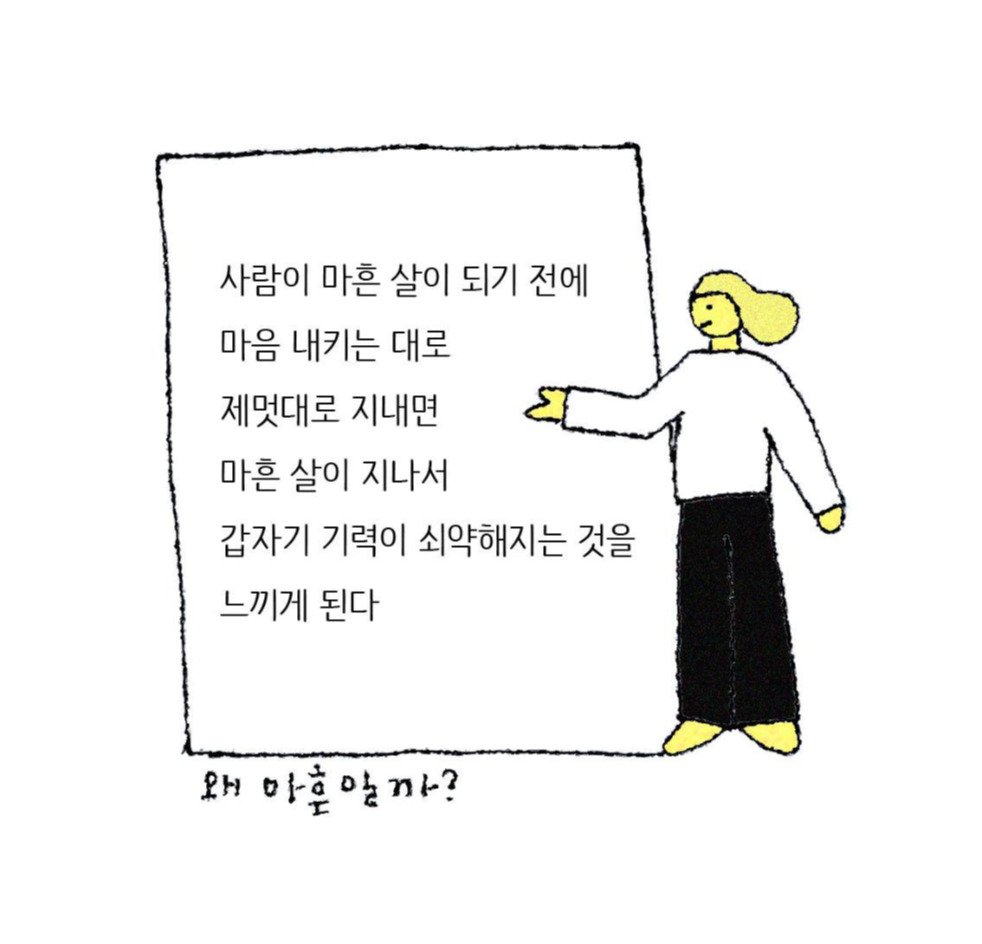 사람이 마흔 살이 되기 전에
마음 내키는 대로
제멋대로 지내면
마흔 살이 지나서
갑자기 기력이 쇠약해지는 것을
느끼게 된다
왜 마흔일까?